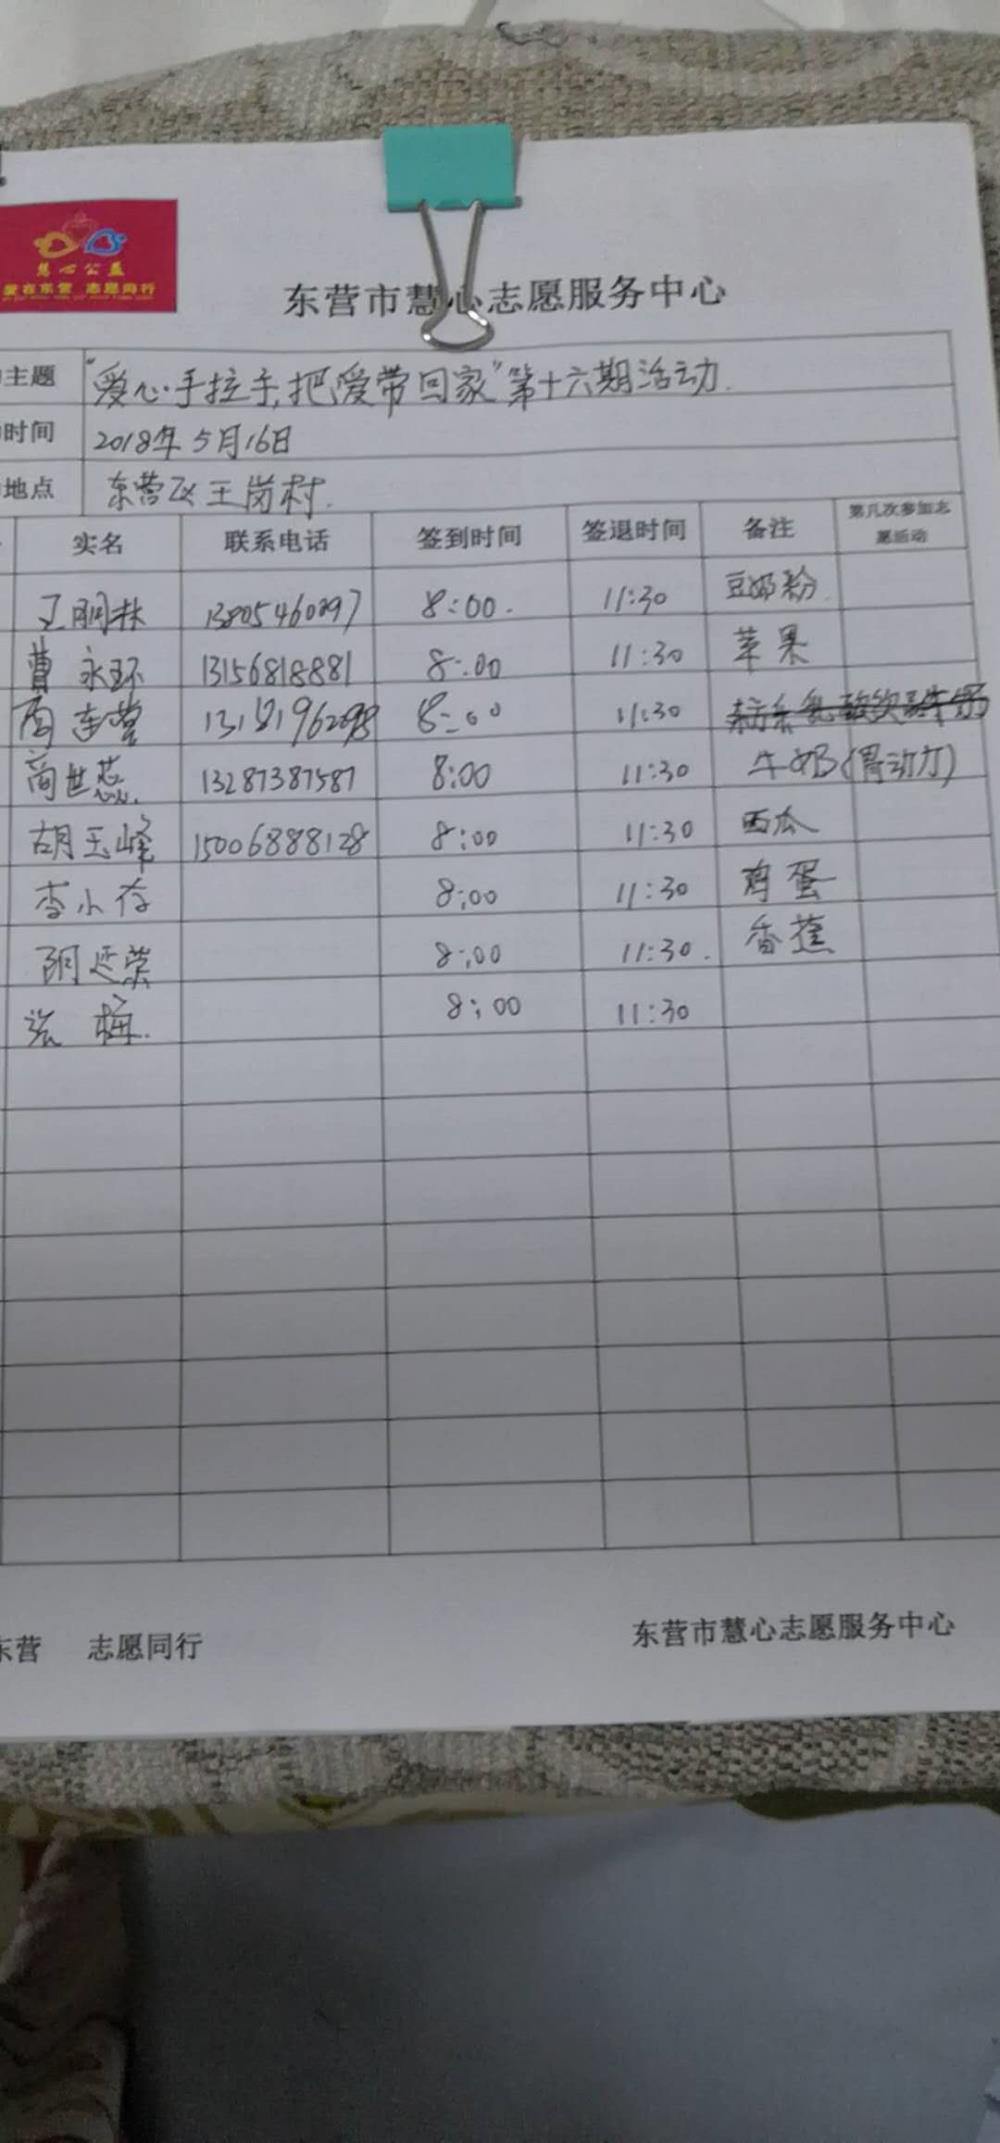 慧心公益
爱在东营 志愿同行
东营市慧心志愿服务中心
主题 "爱心手拉手,把爱带回家"第十六期活动.
时间 2018年5月16日
地点 东营区王岗村.
实名 联系电话 签到时间 签退时间 备注 第几次参加志愿活动
王 8:00. 11:30 豆奶粉.
曹永环 13156818881 8:00 11:30 苹果
8:00 11:30
商世蕊. 13287387587 8:00 11:30 牛奶(胃动力)
胡玉峰 15006888128 8:00 11:30 西瓜
李小存 8:00 11:30 鸡蛋
延荣 8:00 11:30. 香蕉
张梅. 8:00 11:30
东营 志愿同行 东营市慧心志愿服务中心